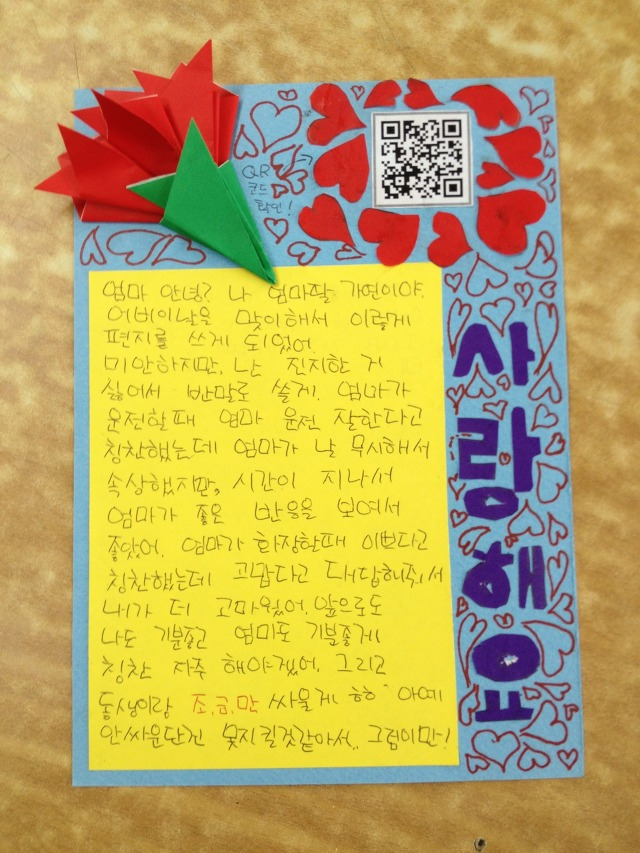 QR
코드
확인!
엄마 안녕? 나 엄마딸 가연이야.
어버이날을 맞이해서 이렇게
편지를 쓰게 되었어.
미안하지만, 난 진지한 거
싫어서 반말로 쓸게. 엄마가
운전할때 엄마 운전 잘한다고
칭찬했는데 엄마가 날 무시해서
속상했지만, 시간이 지나서
엄마가 좋은 반응을 보여서
좋았어. 엄마가 화장할때 이쁘다고
칭찬했는데 고맙다고 대답해줘서
내가 더 고마웠어. 앞으로도
나도 기분좋고 엄마도 기분좋게
칭찬 자주 해야겠어. 그리고
동생이랑 조.금.만 싸울게 ㅎㅎ 아예
안싸운단건 못지킬것같아서.. 그럼이만!
사랑해요